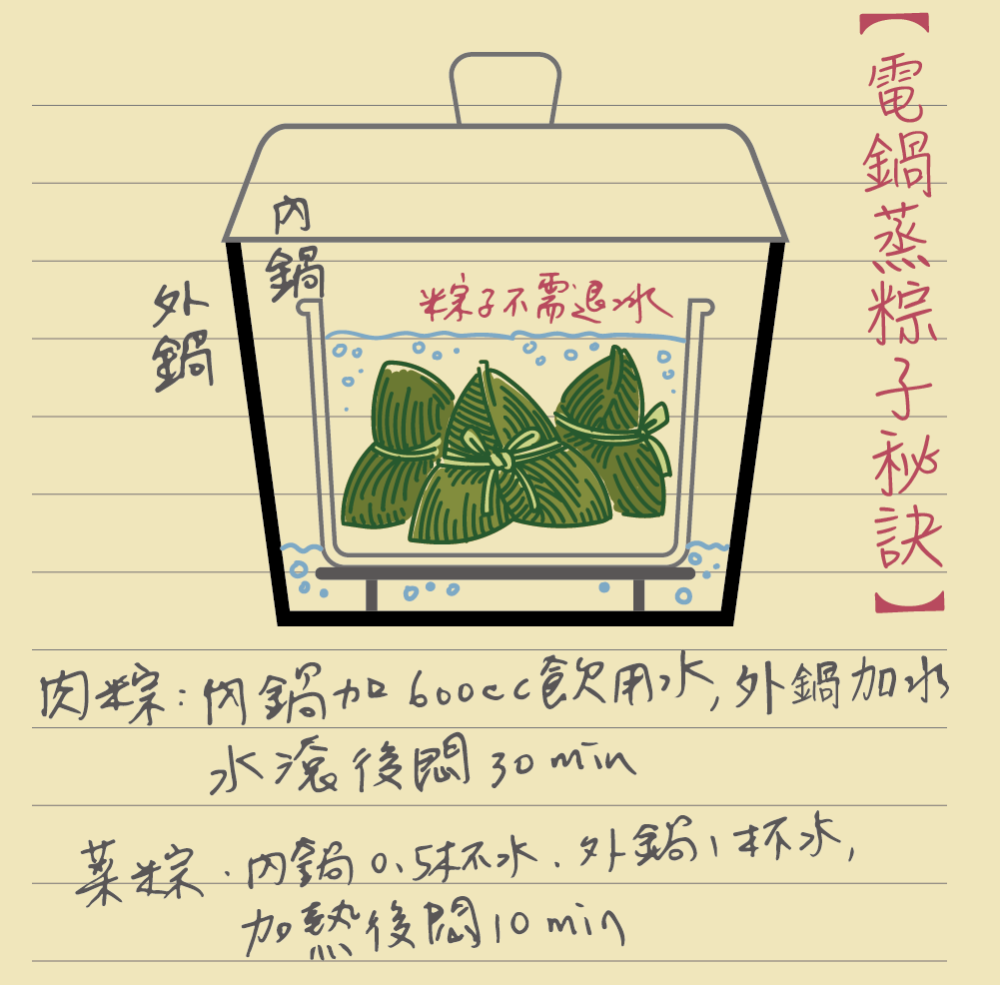 【電鍋蒸粽子秘訣】
內鍋
外鍋
粽子不需退冰
肉粽:內鍋加600cc飲用水,外鍋加水
水滾後悶30min
菜粽.內鍋0.5杯水.外鍋1杯水,
加熱後悶10min